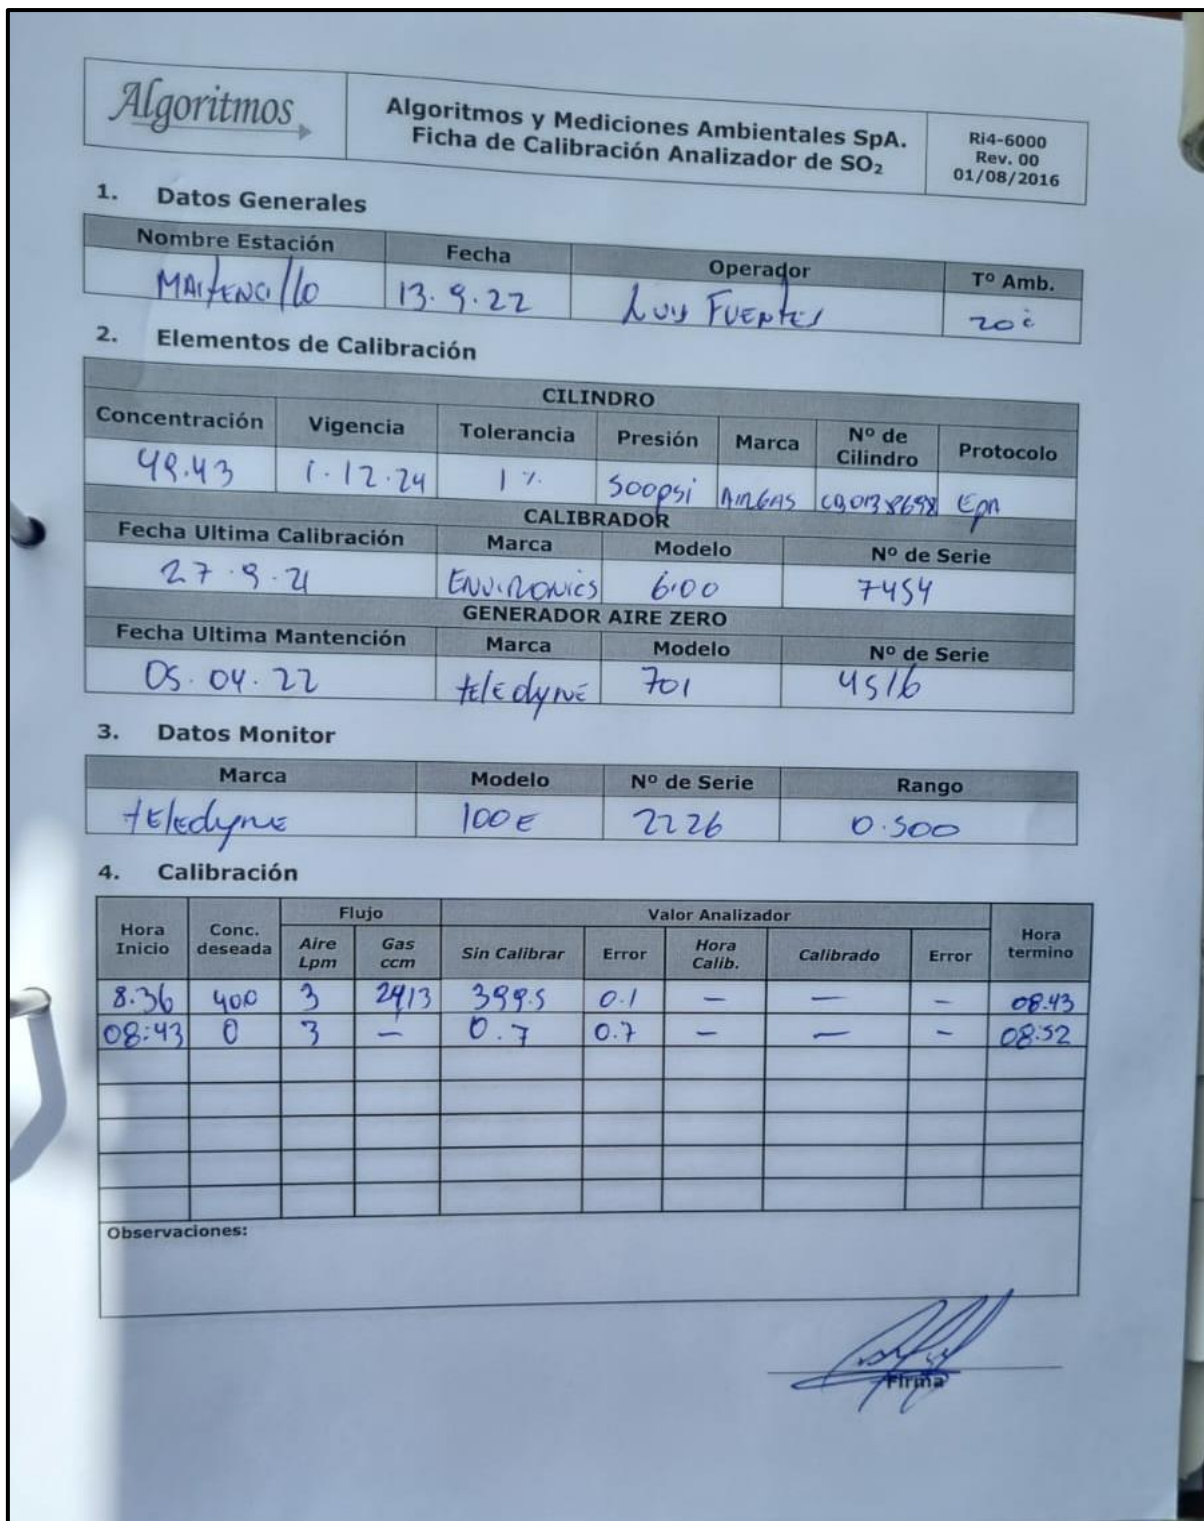 Algoritmos
Algoritmos y Mediciones Ambientales SpA.
Ficha de Calibración Analizador de SO₂
Ri4-6000
Rev. 00
01/08/2016
1. Datos Generales
Nombre Estación Fecha Operador Tº Amb.
MAITENCILLO 13.9.22 LUIS FUENTES 20ºc
2. Elementos de Calibración
CILINDRO
Concentración Vigencia Tolerancia Presión Marca Nº de Cilindro Protocolo
49.43 1.12.24 1% 500psi AIRGAS EPA
CALIBRADOR
Fecha Ultima Calibración Marca Modelo Nº de Serie
27.9.21 ENVIRONICS 6100 7454
GENERADOR AIRE ZERO
Fecha Ultima Mantención Marca Modelo Nº de Serie
05.04.22 teledyne 701 4516
3. Datos Monitor
Marca Modelo Nº de Serie Rango
teledyne 100E 2226 0.500
4. Calibración
Hora Inicio Conc. deseada Flujo Valor Analizador Hora termino
Aire Lpm Gas ccm Sin Calibrar Error Hora Calib. Calibrado Error
8:36 400 3 399.5 0.1 — — — 08:43
08:43 0 3 — 0.7 0.7 — — — 08:52
Observaciones:
Firma